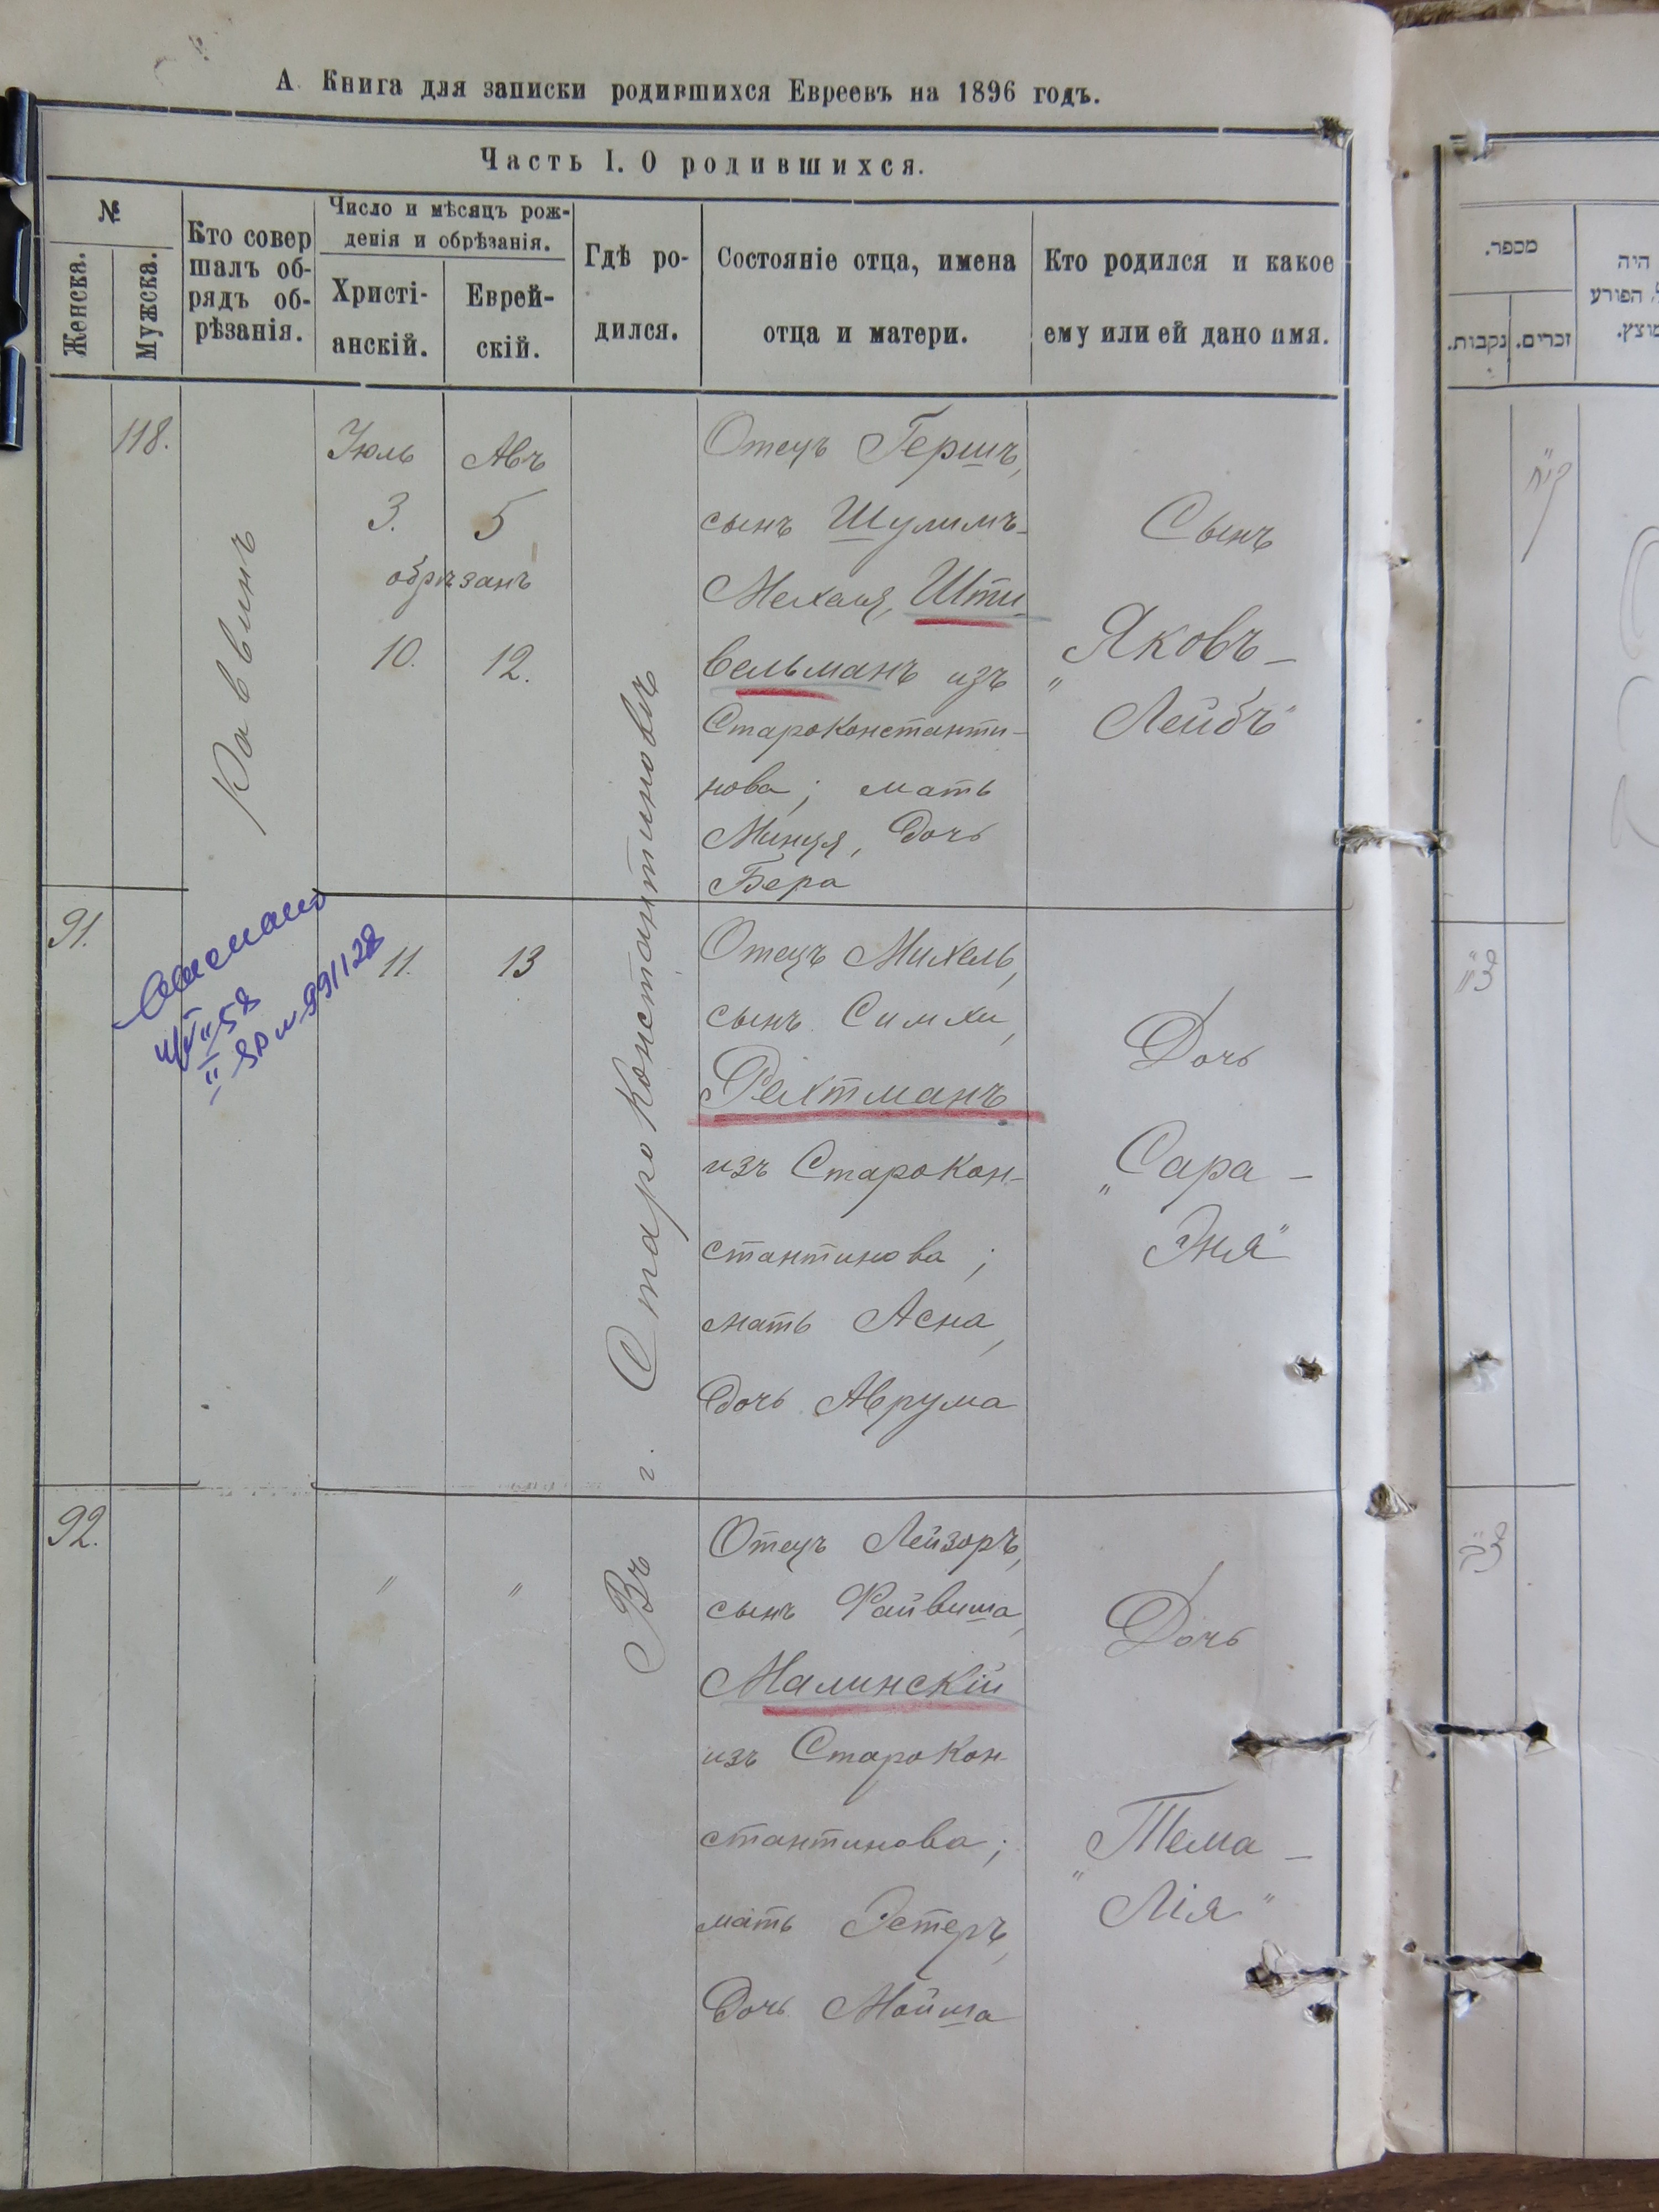 А. Книга для записки родившихся Евреевъ на 1896 годъ.
Часть I. О родившихся.
№
Женска.
Мужска.
Кто совер
шалъ об-
рядъ об-
рѣзанія.
Число и мѣсяцъ рож-
денія и обрѣзанія.
Христі-
анскій.
Еврей-
скій.
Гдѣ ро-
дился.
Состояніе отца, имена
отца и матери.
Кто родился и какое
ему или ей дано имя.
118.
Раввинъ
Июль
3.
Авъ
5
обрѣзанъ
10.
12.
Въ г. Староконстантиновѣ
Отецъ Гершъ,
сынъ Шулимъ-
Мехаля, Шти
вельманъ изъ
Староконстанти-
нова; мать
Минця, дочь
Бера
Сынъ
„Яковъ-
Лейбъ"
91.
11.
13
Отецъ Михель,
сынъ Симхи,
Рехтманъ
изъ Старокон-
стантинова;
мать Асна,
дочь Аврума
Дочь
„Сара -
Эня"
92.
"
"
Отецъ Лейзоръ,
сынъ Файвиша,
Малинскій
изъ Старокон
стантинова;
мать Эстеръ,
дочь Мойша
Дочь
„Тема -
Лія"
מספר.
נקבות.
זכרים.
היה
הפורע
קי״ח
צ״א
צ״ב